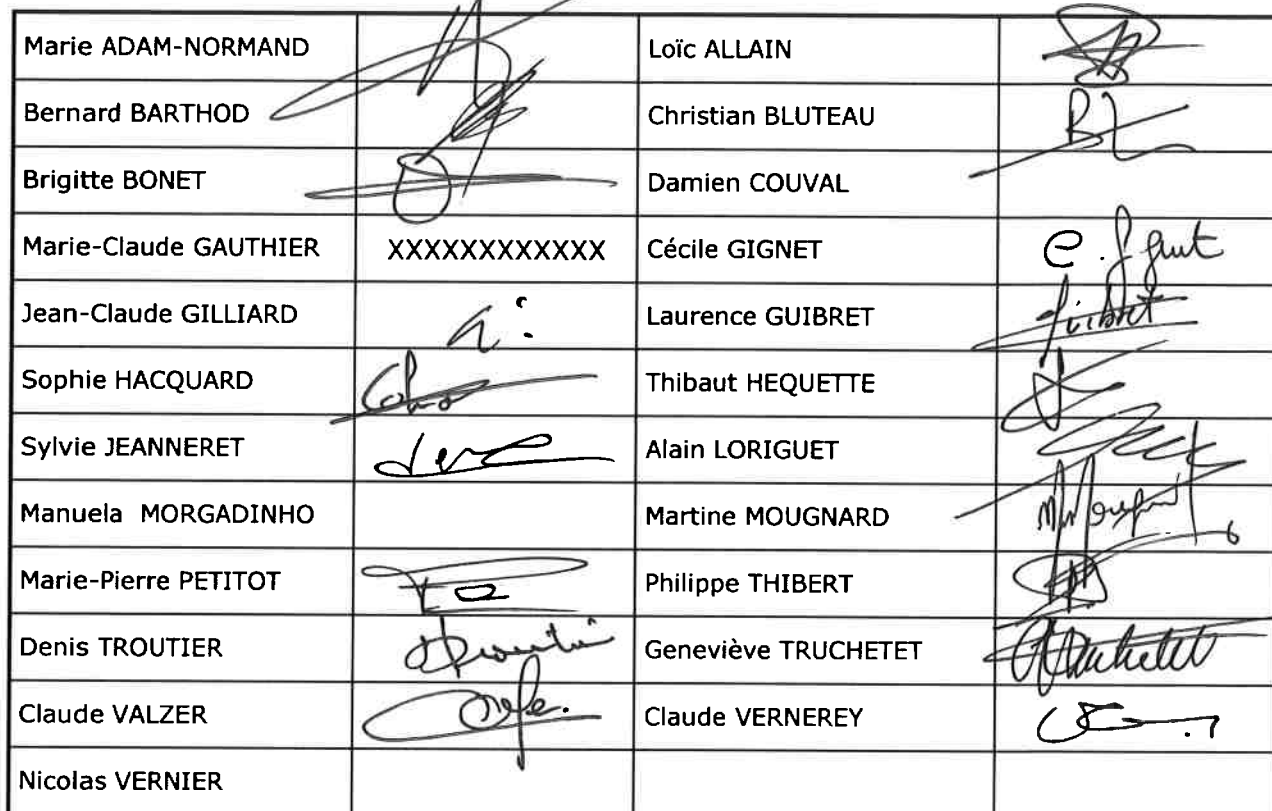 Marie ADAM-NORMAND Loïc ALLAIN
Bernard BARTHOD Christian BLUTEAU
Brigitte BONET Damien COUVAL
Marie-Claude GAUTHIER XXXXXXXXXXXX Cécile GIGNET
Jean-Claude GILLIARD Laurence GUIBRET
Sophie HACQUARD Thibaut HEQUETTE
Sylvie JEANNERET Alain LORIGUET
Manuela MORGADINHO Martine MOUGNARD
Marie-Pierre PETITOT Philippe THIBERT
Denis TROUTIER Geneviève TRUCHETET
Claude VALZER Claude VERNEREY
Nicolas VERNIER